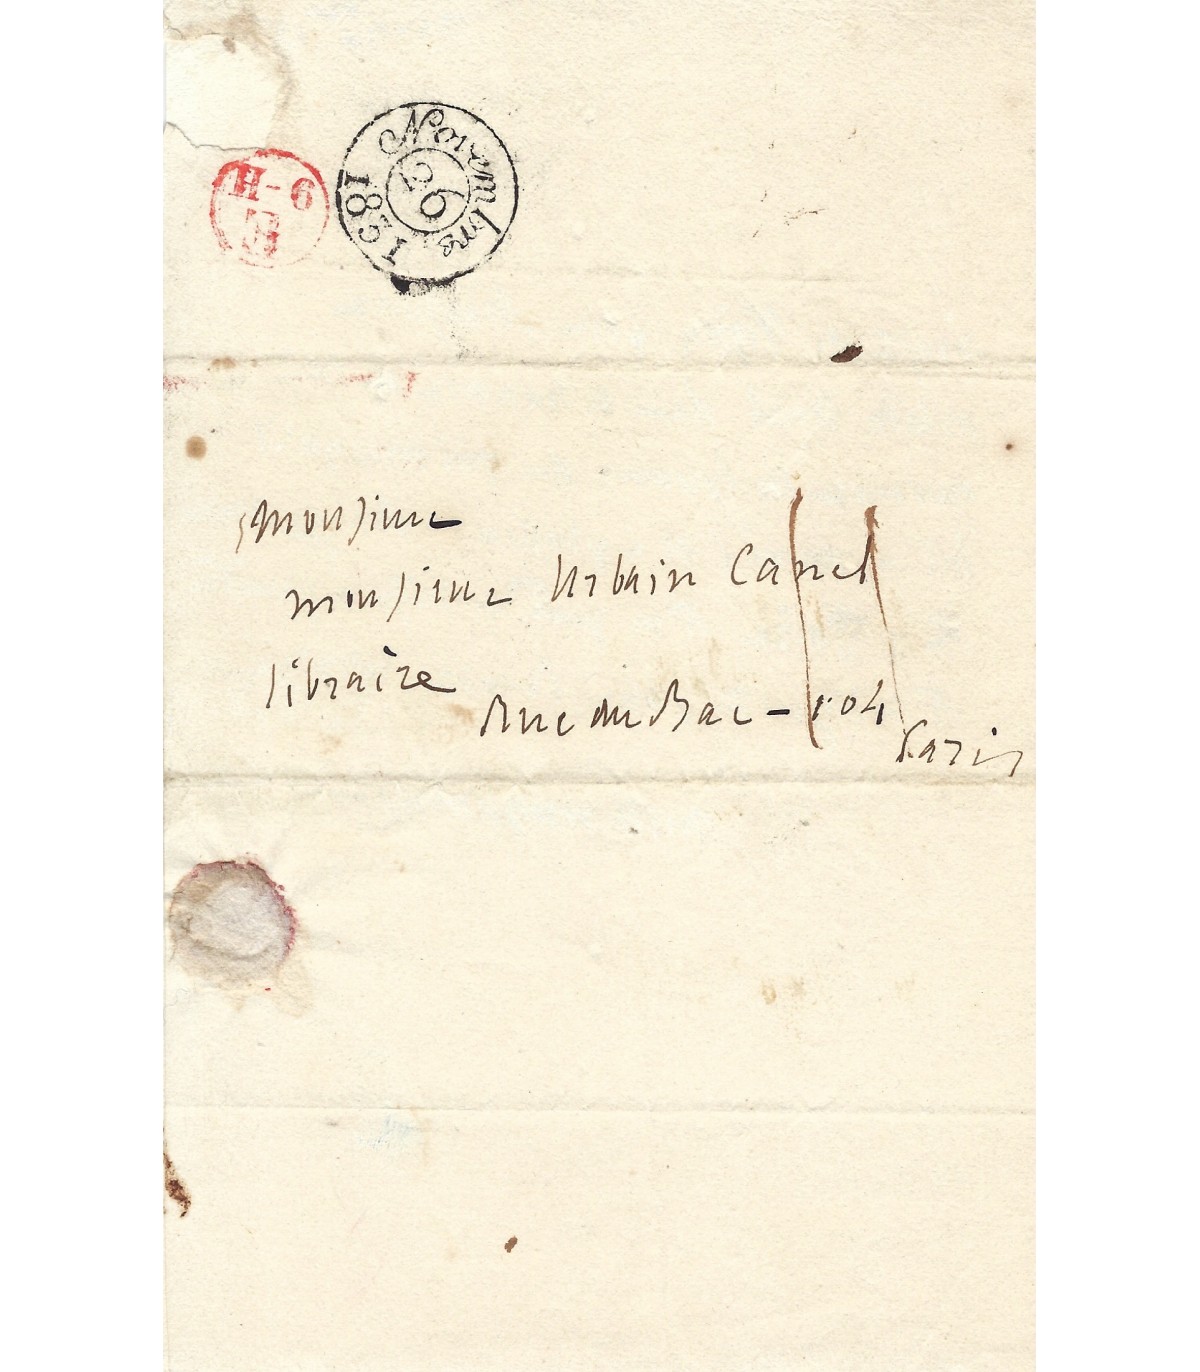 H-6
Novembre 26 1831
monsieur
monsieur Urbain Canel
libraire
Rue du Bac - 104
Paris